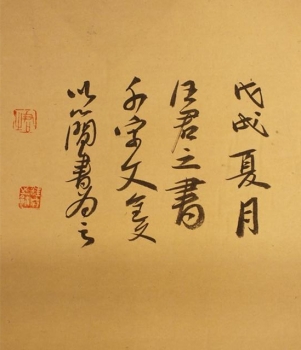 戊戌夏月
汪君之書
千字文隻
以簡書為之